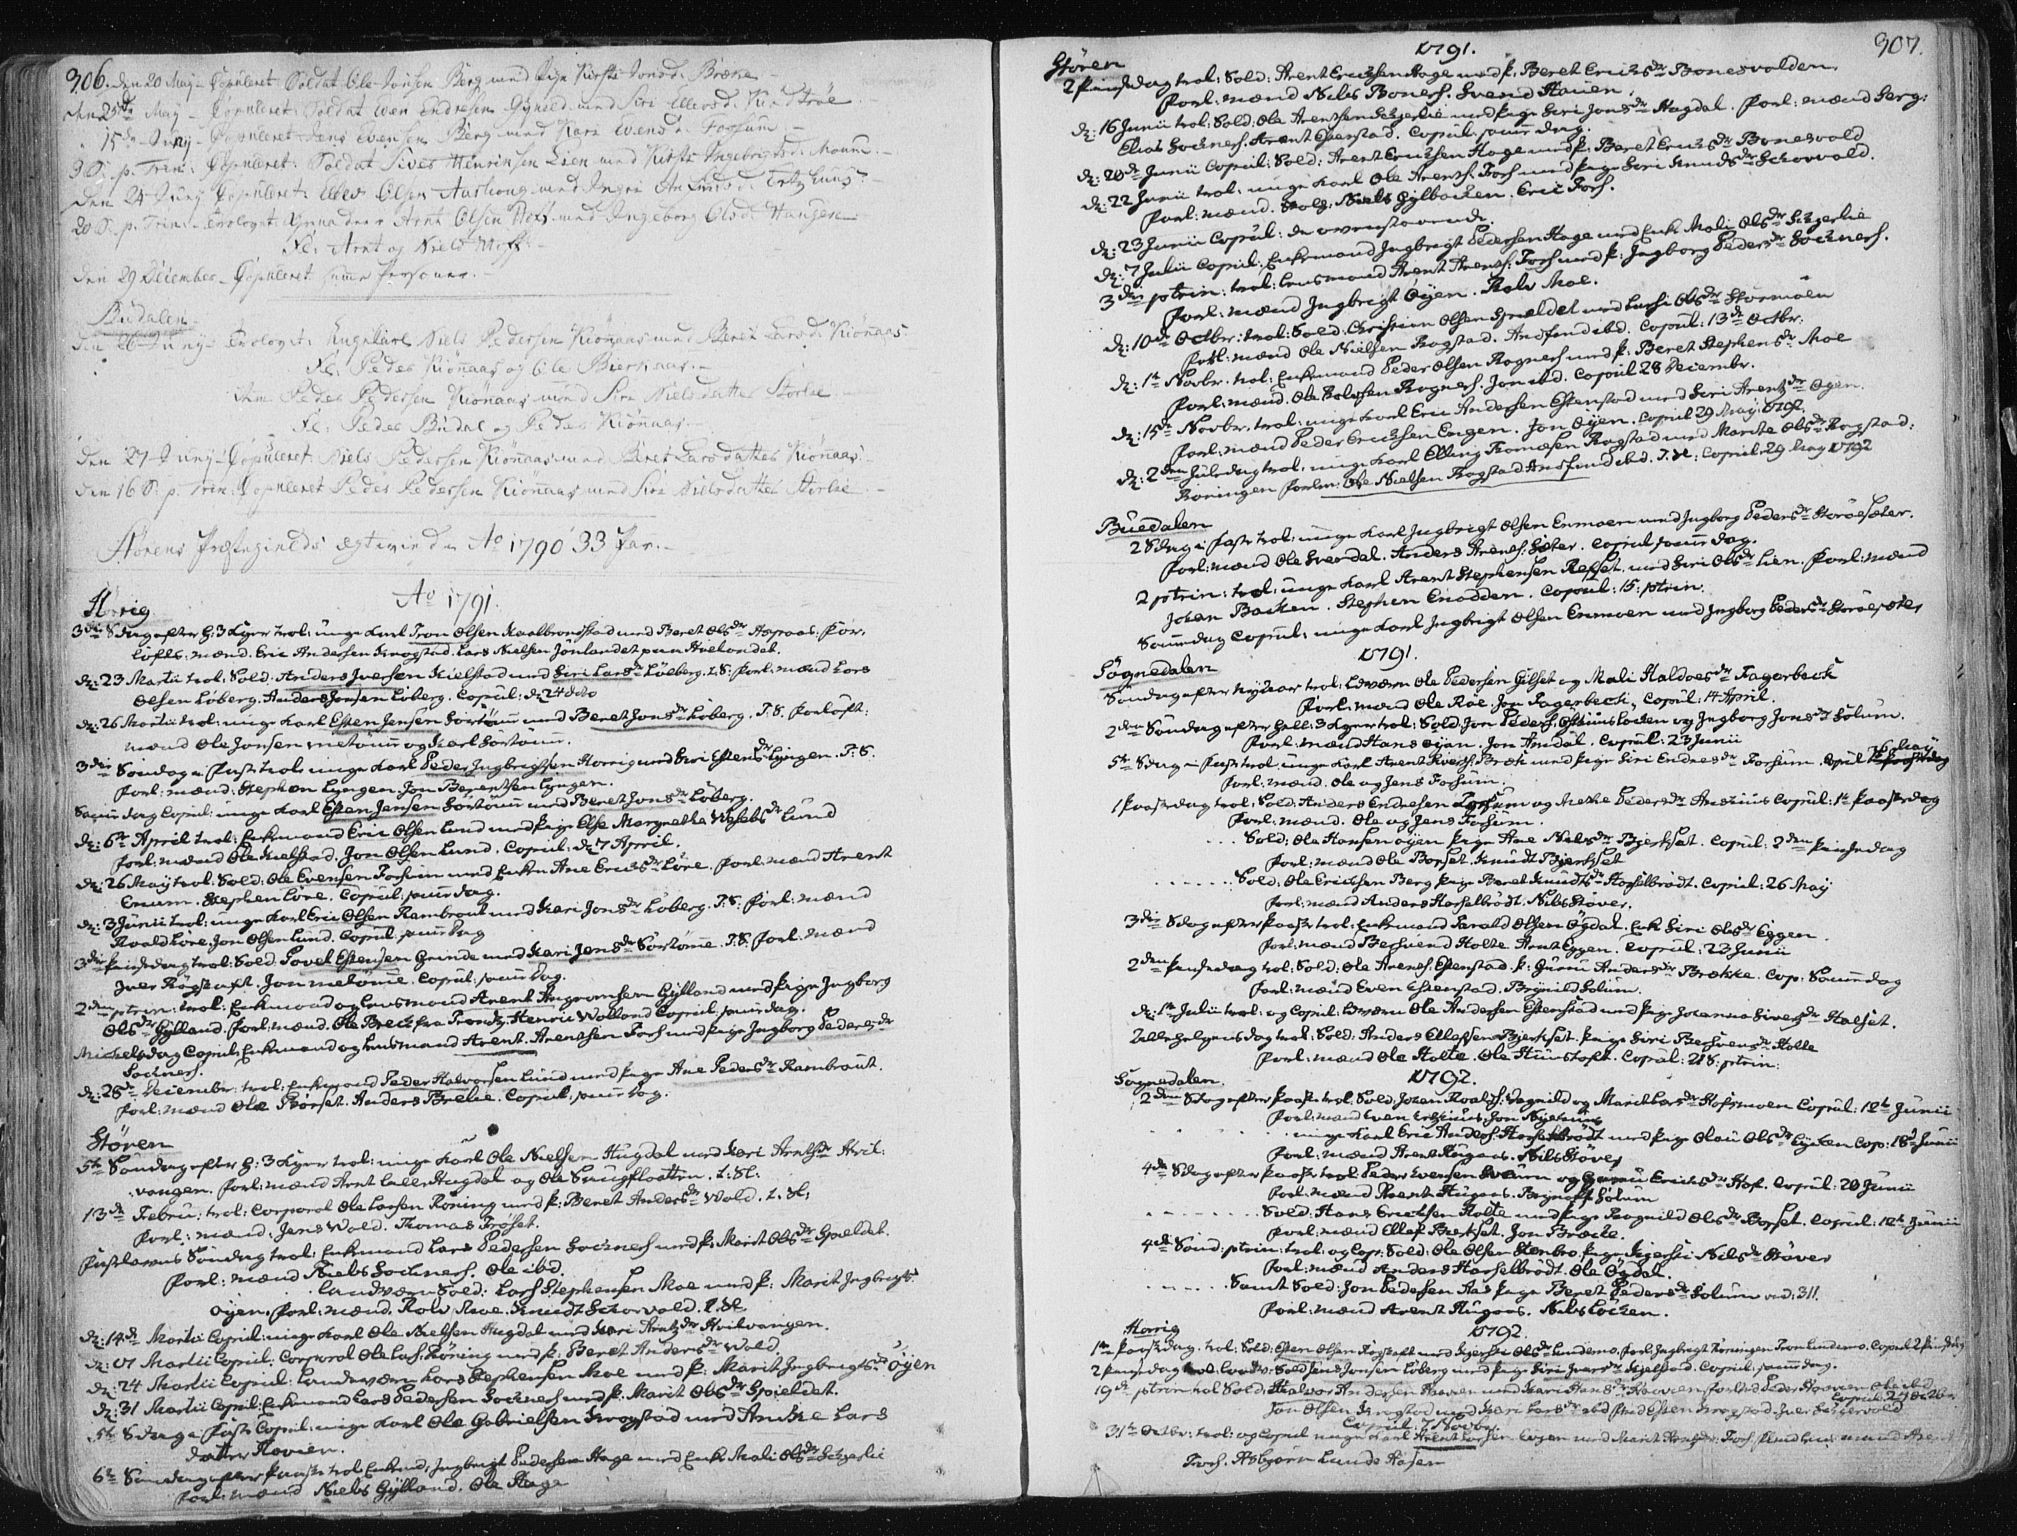 306. den 20 May - Copuleret Soldat Ole Jonsen Berg med Pige Kirsti Jonsd: Bræke -
den 25de May - Copuleret: Soldat Iwer Endresen Gynild med Siri Ellevsd: Kindtrøe
15de Juny - Copuleret Jens Evensen Berg med Kari Evensd: Forsum -
3 S: p: Trin: Copuleret: Soldat Siver Henriksen Lien med Kirsti Ingebrigtsd: Moum -
den 24 Juny Copuleret: Ellev Olsen Aashoug med Ingri
20 S: p: Trin: - Trolovet: Grenadeer Arnt Olsen Moss med Ingeborg Olsd: Haugen
Fl: Arnt og Niels Moss -
den 29 December - Copuleret samme Personer -
Budalen
den 26 Juny - Trolovet: Ungkarl Niels Pedersen Kiönaas med Beret Larsd: Kiönaas
Fl: Peder Kiönaas og Ole Bierkaas -
item Peder Pedersen Kiönaas med Siri Nielsdatter Storlie
Fl: Peder Budal og Peder Kiönaas -
den 27 Juny - Copuleret: Niels Pedersen Kiönaas med Beret Larsdatter Kiönaas
den 16 S: p: Trin: Copuleret Peder Pedersen Kiönaas med Siri Nielsdatter Storlie
Störens Præstegields egteviede Ao 1790 33 Par -
Ao 1791.
Horrig
3die Sdag efter H: 3 Kger trol: unge Karl Tron Olsen Kaalbrandstad med Beret Olsdr Hagraas. For-
löfts. mænd. Eric Andersen Krogstad. Lars Nielsen Jönlandet paa Hvelondet.
d: 23 Martii trol: Sold: Anders Iversen Kielstad med Siri Larsdr Löberg. T.S: Forl: mænd Lars
Olsen Löberg. Anders Jonsen Löberg. Copul: d: 24 dito
d: 26 Martii trol: unge Karl Esten Jensen Sörtömme med Beret Jonsdr Löberg. T.S. Forlöft:
mænd Ole Jonsen metömme og Karl Sörtömme.
3die Söndag i Fast: trol: unge Karl Peder Ingbrigtsen Horrig med Siri Estensdr Lyngen. T:S.
Forl: mænd. Stephen Lyngen Jon Berentsen Lyngen.
Samme dag Copul: unge Karl Esten Jensen Sörtömme med Beret Jonsdr Löberg.
d: 6te April trol: Enkemand Eric Olsen Lund med Pige Else Margretha Lund
Forl: mænd Ole Kielstad. Jon Olsen Lund. Copul: d: 7 April.
d: 26 Maij trol: Sold: Ole Evensen Forsum med Enken Ane Ericsdr Löre. Forl: mænd Arent
Enum. Stephen Löre. Copul: samme dag.
d: 3 Junii trol: unge Karl Eric Olsen Rambraut med Kari Jonsdr Löberg. T.S: Forl: mænd
Roald Löre. Jon Olsen Lund. Copul: samme dag
3die Pinsedag trol: Sold: Povel Estensen Grinde med Kari Jensdr Sörtömme. T.S Forl: mænd
Iver Rogstaft. Jon metömme. Copul: samme dag.
2den p trin: trol: Enkemand og Leusmand Arent Ingromsen Gylland med Pige Ingborg
Olsdr Gylland. Forl: mænd. Ole Breck fra Trondj: Henric Wolland Copul: samme dag.
Michelsdag Copul: Enkemand og Leusmand Arent. Arentsen Fors med Pige Ingborg Pedersdr
Soknes.
d: 28de Decembr: trol: Enkemand Peder Halvorsen Lund med Pige Ane Pedersdr Rambraut.
Forl: mænd Ole Börset. Anders Brekke. Copul: samme dag.
Stören
5te Söndag efter H: 3 Kger trol: unge Karl Ole Nielsen Hugdal med Kari Arntsdr Hvil:
vangen. Forl: mænd Arnt Hugdal og Ole Snugsloatten. T: St:
13de Febru: trol: Corporal Ole Larsen Röning med P: Beret Andersdr Wold. T. St:
Forl: mænd. Jens Wold. Thomas Fröset.
Fastelavns Söndag trol: Enkemand Lars Pedersen Soknes med P: Marit Olsdr Spieldet.
Forl: mænd Niels Soknes. Ole ibd.
Landværn Sold: Lars Stephensen Moe med P: Marit Ingbrigtsdr
Öyen. Forl: mænd. Rolv Moe. Knudt Skorvold. T. St
d: 14de Martii Copul: unge Karl Ole Nielsen Hugdal med Kari Arntsdr Hvilvangen.
d: 17 Martii Copul: Corporal Ole Lars: Röning med P: Beret Andersdr Wold.
d: 24 Martii Copul: Landværn Lars Stephensen Moe med P: Marit Ingbrigtsdr Öyen
d: 31 Martii Copul: Enkemand Lars Pedersen Soknes med P: Marit Olsdr Spieldet.
5te Sdag i Fast: Copul: unge Karl Ole Gabrielsen Krogstad med Anne Lars
datter Hovien.
6te Söndag efter Paaske trol: Enkemd: Ingbrigt Pedersen Hage med Enke Mali Olsdr Schjerlie
Forl: mænd Niels Gylland. Ole Hage
Stören 1791. 307.
2 Pinsedag trol: Sold: Arent Ericksen Hage med P: Beret Ericksdr Bonesvolden.
Forl: mænd Nils Bones. Svend Hauen.
d: 16 Junii trol: Sold: Ole Arentsen Schjerlie med Pige Siri Jonsdr Hugdal. Forl: mænd Serg:
Elias Soknes. Arent Estenstad. Copul: samme dag.
d: 20de Junii Copul: Sold: Arent Ericksen Hage med P: Beret Ericksdr Bonesvold
d: 22 Junii trol: unge Karl Ole Arents: Fors med Pige Siri Knudsdr Schorvold.
Forl: mænd. Niels Gylbacken. Eric Fors.
d: 23 Junii Copul: de ovenstaaende.
d: 7 Julii Copul: Enkemand Ingbrigt Pedersen Hage med Enke Mali Olsdr Schjerlie
3die p trin: trol: Leusmand Arent Arents: Fors med P: Ingborg Pedersdr Soknes.
Forl: mænd Ingbrigt Öyen. Rolv Moe.
d: 10de Octbr: trol: Sold: Christian Olsen Spieldet med Olsdr Störmöen
Forl: mænd Ole Nielsen Rogstad. Amfind ibd. Copul: 13de Octbr:
d: 1te Novbr. trol: Enkemand Peder Olsen Rognes med P: Beret Stephensdr Moe
Forl: mænd. Ole Rognes. Jon ibd. Copul 28 Decembr.
d: 15de Novbr. trol: unge Karl Eric Andersen Estenstad med Siri Arentsdr Öyen.
Forl: mænd Peder Ericksen Engen. Jon Öyen. Copul 29 Maij 1792.
d: 2den Juledag trol: unge Karl Elling Tromesen Rogstad med Marite Olsdr Rogstad:
Röningen Forl: m: Ole Nielsen Rogstad Amfind ibd. T. St: Copul 29 May 1792
Buedalen
2 Sdag i Faste trol: unge Karl Ingbrigt Olsen Enmoen med Ingborg Pedersdr Storöesæter.
Forl: mænd Ole Sverdal. Anders Arents: Sæter. Copul: samme dag.
2 p trin: trol: unge Karl Arent Stephensen Refset. med Siri Olsdr Lien. Forl: mænd
Johan Backen. Stephen Enodden. Copul: 15: p trin.
Samme dag Copul: unge Karl Ingbrigt Olsen Enmoen med Ingborg Pedersdr Storöesæter
1791.
Sognedalen
Söndag efter Nytaar trol: Ldværn Ole Pedersen Gilset og Mali Haldosdr Fagerbeck
Forl: mænd Ole Roe. Jon Fagerbeck. Copul: 14 April.
2den Söndag efter Hell: 3 Kger trol: Sold: Jon Peders: Locken og Ingborg Jonsdr Solum.
Forl: mænd Hans Öyan. Jon Amdal. Copul: 23 Junii
5te Sdag i Faste trol: unge Karl Arent Iverss: Bræk med Pige Siri Endresdr Forsum. Copul 26 Maij
Forl: mænd. Ole og Jens Forsum.
1 Paaskedag trol: Sold: Anders Endresen Forsum og Mette Pedersdr Aaszuus Copul: 1te Paaskedag
Forl: mænd. Ole og Jens Forsum.
. . . Sold: Ole Hansen Öyen Pige Ane Nilsdr Bjerkset. Copul: 2den Pinsedag
Forl: mænd Ole Borset. Knudt Bjerkset
. . . . . Sold: Ole Ericksen Berg Pige Beret Knudtsdr Hosselbrödt. Copul: 26 Maij
Forl: mænd Anders Hosselbrödt. Nils Stöver.
3die Sdag efter Paaske trol: Enkemand Harald Olsen Ögdal. Enke Siri Olsdr Eggen.
Forl: mænd Bersvend Holte Arnt Eggen. Copul: 23 Junii
2den Pinsedag trol: Sold: Ole Arents: Estenstad P: Guru Andersdr Brække. Cop: Samme dag
Forl: mænd Even Estenstad. Brynild Solum.
d: 1te Julii trol: og Copul: Ldværn Ole Andersen Estenstad med Pige Johanna Siversdr Halset.
Allehelgensdag trol: Sold: Anders Ellefsen Bjerkset Pige Siri Bersvensdr Holte
Forl: mænd Ole Holte. Ole Hinstoft. Copul: 21 S: p trin:
Sognedalen. 1792.
2den Sdag efter Paaske trol: Sold: Johan Roalds: Vagnild og Marit Larsdr Hofsmoen Copul: 12te Junii
Forl: mænd Even Jon
. . . unge Karl Eric Anders: Hosselbrödt med Pige Olau Olsdr Cop: 18de Junii
Forl: mænd Arent Hugaas. Nils Stöver
4de Sdag efter Paaske trol Peder Iversen Svarn og Guru Ericksdr Hof. Copul: 20 Junii
Forl: mænd Arent Hugaas. Brynolf Solum
. . . . . . Sold: Hans Ericksen Holte med Pige Ragnild Olsdr Borset. Copul: 12te Junii
Forl: mænd Ellef Berkset. Jon Bræcke.
4de Sönd: p trin: trol: og Cop: Sold: Ole Olsen Stenbro Pige Kjersti Nilsdr Stöver
Forl: mænd Anders Hosselbrödt. Ole Ögdal.
. . . . . Samt Sold: Jon Pedersen Aas Pige Beret Pedersdr Solum vid: 311.
Forl: mænd Arent Hugaas. Nils Löcken.
Horrig 1792.
1te Paaskedag. trol: Sold: Esten Olsen Rogstaft med Kjersti Olsdr Lundemo. Forl: Ingbrigt Röningen Tron Lundemo. Copul 2 Pinsedag
2 Pinsedag trol: Landv: Sold: Jens Jonsen Löberg med Pige Siri Iversdr Kjelstad. Copul: samme dag.
19de p trin trol Sold: Halvor Andersen Hovien med Kari Hansdr Hovien forlöd Peder Hovien Ole ibd Copul: 24 Octbr.
Jon Olsen Krogstad med Kari Larsdr ibd Esten Krogstad Iver
Copul: 7 Novbr
31te Octbr: trol: og Copul unge Karl Arent Larsen Engen med Marit Arntsdr: Fors, mand Arent
Fors. Asbjörn Lunde Hosen